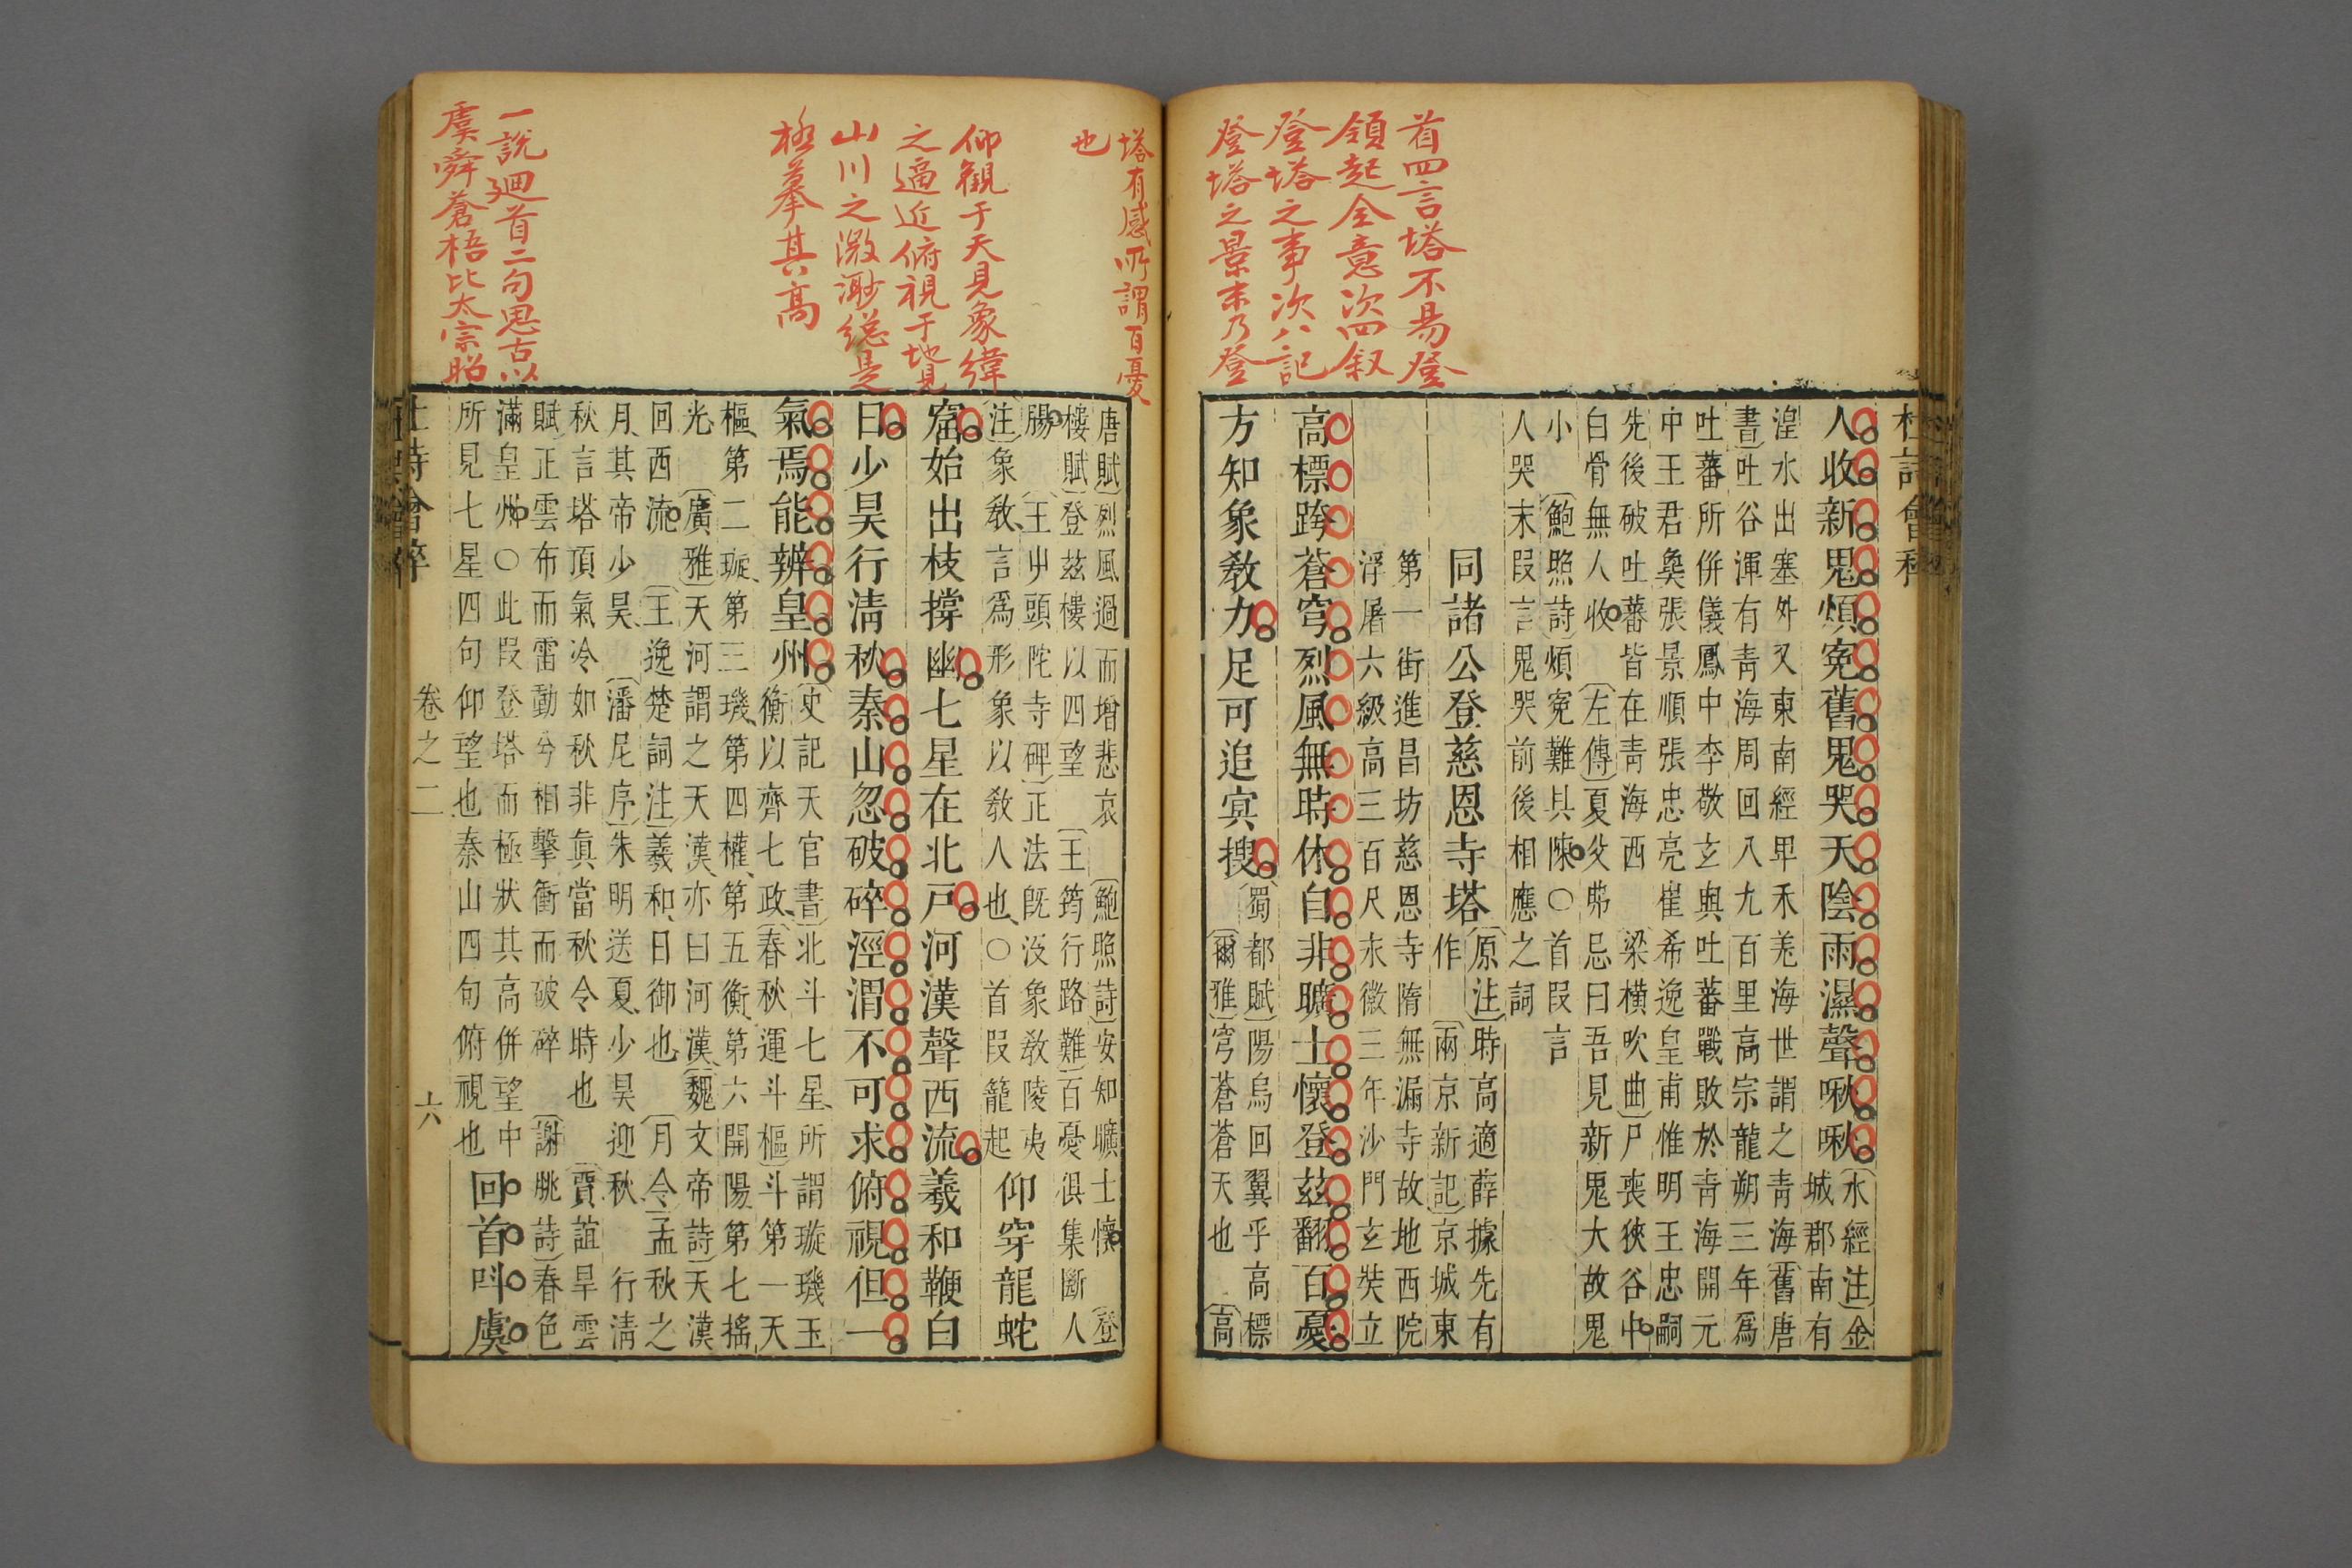 首四言塔不易登
領起全意次四叙
登塔之事次八記
登塔之景末乃登
人收新鬼煩冤舊鬼哭天陰雨濕聲啾啾
水經注金
城郡南有
湟水出塞外又東南經卑禾羌海世謂之青海舊唐
書吐谷渾有青海周回八九百里高宗龍朔三年為
吐蕃所併儀鳳中李敬玄與吐蕃戰敗於青海開元
中王君㚟張景順張忠亮崔希逸皇甫惟明王忠嗣
先後破吐蕃皆在青海西 梁橫吹曲尸喪狹谷中
白骨無人收 左傳夏父弗忌曰吾見新鬼大故鬼
小 鮑照詩煩冤難具陳○首叚言
人哭末叚言鬼哭前後相應之詞
同諸公登慈恩寺塔
原注時高適薛據先有
作 兩京新記京城東
第一街進昌坊慈恩寺隋無漏寺故地西院
浮屠六級高三百尺永徽三年沙門玄奘立
高標跨蒼穹烈風無時休自非曠士懷登茲翻百憂
方知象敎力足可追㝠搜
蜀都賦陽烏回翼乎高標
爾雅穹蒼蒼天也 高
塔有感所謂百憂
也
仰觀于天見象緯
之逼近俯視于地見
山川之微渺總是
極摹其高
一說廻首二句思古以
虞舜蒼梧比太宗昭
唐賦烈風過而增悲哀 鮑照詩安知曠士懷 登
樓賦登茲樓以四望 王筠行路難百憂俱集斷人
腸 王屮頭陀寺碑正法旣沒象敎陵夷
注象敎言為形象以敎人也○首叚籠起
仰穿龍蛇
窟始出枝撐幽七星在北戸河漢聲西流羲和鞭白
日少昊行淸秋秦山忽破碎涇渭不可求俯視但一
氣焉能辨皇州
史記天官書北斗七星所謂璇璣玉
衡以齊七政春秋運斗樞斗第一天
樞第二璇第三璣第四權第五衡第六開陽第七搖
光 廣雅天河謂之天漢亦曰河漢魏文帝詩天漢
回西流 王逸楚詞注羲和日御也 月令孟秋之
月其帝少昊 潘尼序朱明送夏少昊迎秋 行淸
秋言塔頂氣冷如秋非眞當秋令時也 賈誼旱雲
賦正雲布而雷動兮相擊衝而破碎 謝朓詩春色
滿皇州○此叚登塔而極狀其高併望中
所見七星四句仰望也秦山四句俯視也
回首叫虞
杜詩會稡
卷之二
六